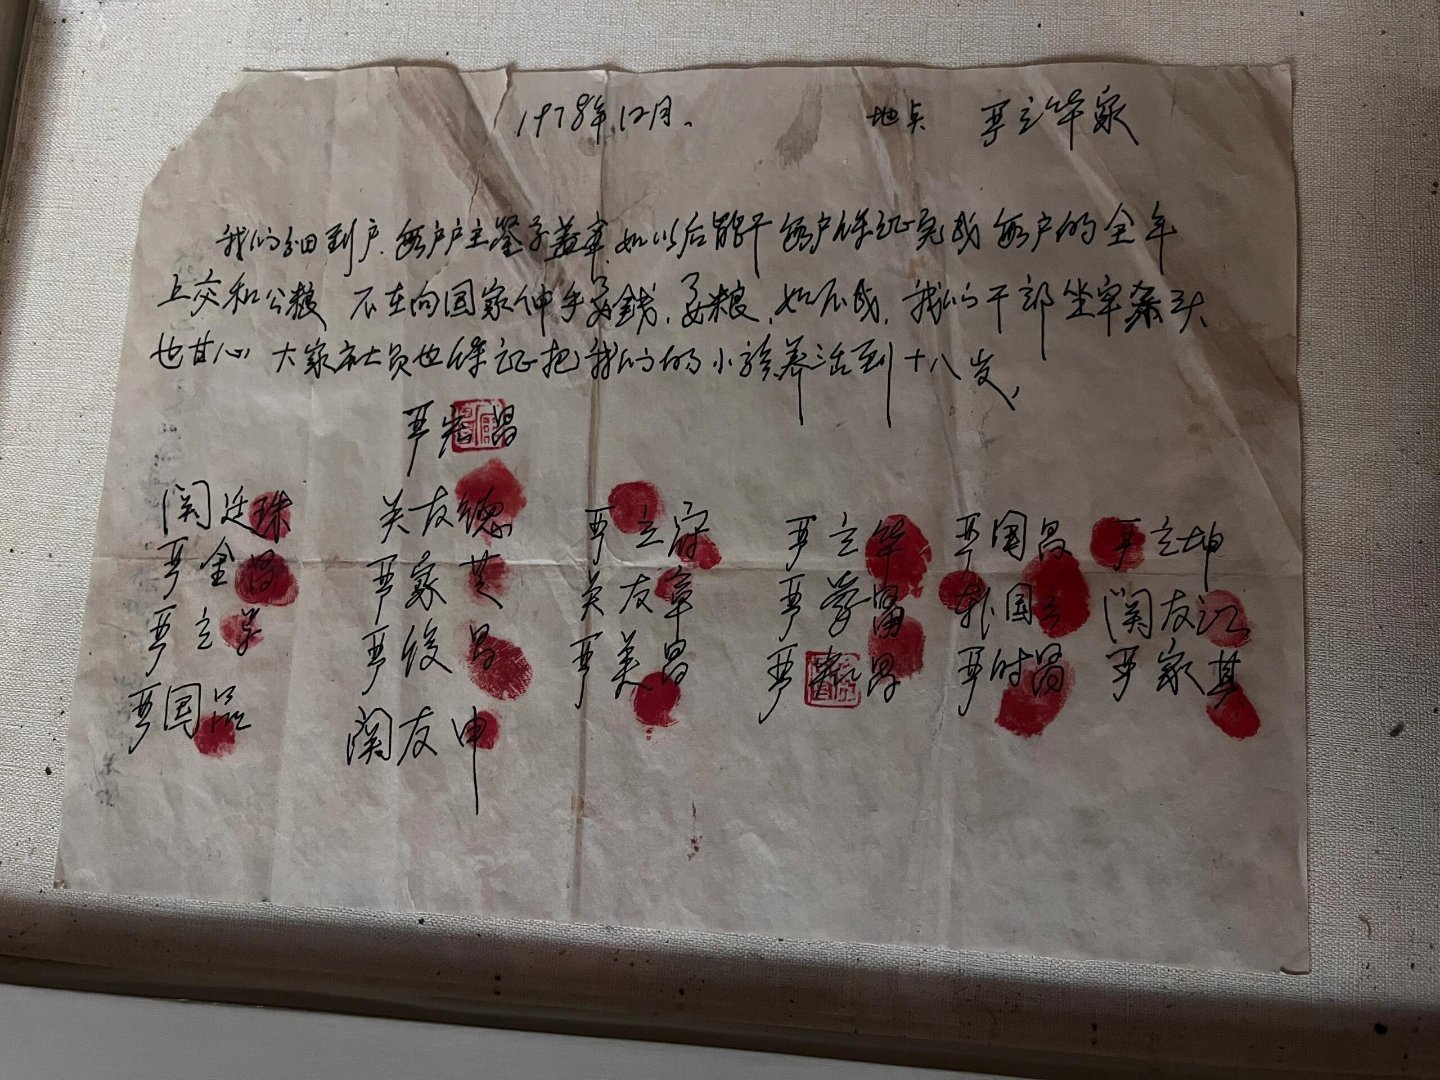 1978年.12月. 地点 严立华家
我们分田到户.每户户主签字盖章.如以后能干每户保证完成每户的全年
上交和公粮 不在向国家伸手要钱.要粮.如不成.我们干部坐牢杀头
也甘心 大家社员也保证把我们的小孩养活到十八岁,
严宏昌
関廷珠 关友德 严立符 严立华 严国昌 严立坤
严金昌 严家芝 关友章 严学昌 韩国云 関友江
严立学 严俊昌 严美昌 严宏昌 严付昌 严家其
严国品 関友申